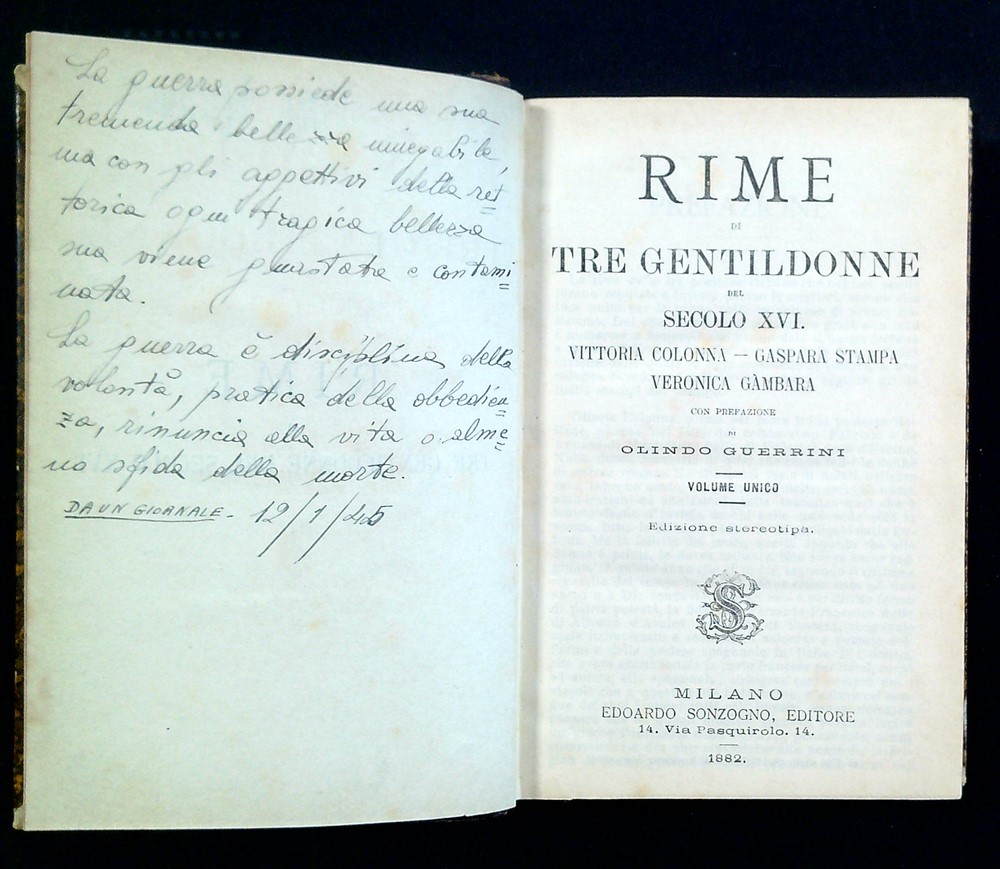 La guerra possiede una sua
tremenda bellezza innegabile,
ma con gli aggettivi della ret
torica ogni tragica bellezza
sua viene guastata e contami
nata.
La guerra è disciplina della
volontà, pratica della obbedien
za, rinuncia alla vita o alme
no sfida della morte.
DA UN GIORNALE - 12/1/45
RIME
DI
TRE GENTILDONNE
DEL
SECOLO XVI.
VITTORIA COLONNA — GASPARA STAMPA
VERONICA GÀMBARA
CON PREFAZIONE
DI
OLINDO GUERRINI
VOLUME UNICO
Edizione stereotipa.
MILANO
EDOARDO SONZOGNO, EDITORE
14. Via Pasquirolo. 14.
1882.